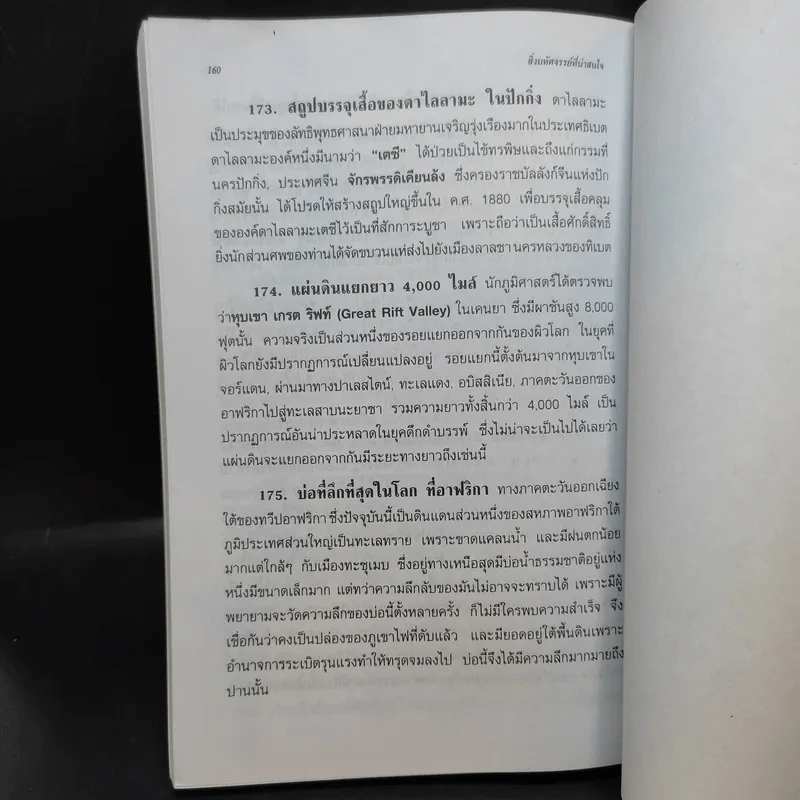 160
สิ่งมหัศจรรย์ที่น่าสนใจ
173. สถูปบรรจุเสื้อของดาไลลามะ ในปักกิ่ง ดาไลลามะ
เป็นประมุขของลัทธิพุทธศาสนาฝ่ายมหายานเจริญรุ่งเรืองมากในประเทศธิเบต
ดาไลลามะองค์หนึ่งมีนามว่า “เตซี” ได้ป่วยเป็นไข้ทรพิษและถึงแก่กรรมที่
นครปักกิ่ง, ประเทศจีน จักรพรรดิเคียนลัง ซึ่งครองราชบัลลังก์จีนแห่งปัก
กิ่งสมัยนั้น ได้โปรดให้สร้างสถูปใหญ่ขึ้นใน ค.ศ. 1880 เพื่อบรรจุเสื้อคลุม
ขององค์ดาไลลามะเตซีไว้เป็นที่สักการะบูชา เพราะถือว่าเป็นเสื้อศักดิ์สิทธิ์
ยิ่งนักส่วนศพของท่านได้จัดขบวนแห่ส่งไปยังเมืองลาสซานครหลวงของทิเบต
174. แผ่นดินแยกยาว 4,000 ไมล์ นักภูมิศาสตร์ได้ตรวจพบ
ว่าหุบเขา เกรต ริฟท์ (Great Rift Valley) ในเคนยา ซึ่งมีผาชันสูง 8,000
ฟุตนั้น ความจริงเป็นส่วนหนึ่งของรอยแยกออกจากกันของผิวโลก ในยุคที่
ผิวโลกยังมีปรากฏการณ์เปลี่ยนแปลงอยู่ รอยแยกนี้ตั้งต้นมาจากหุบเขาใน
จอร์แดน, ผ่านมาทางปาเลสไตน์, ทะเลแดง, อบิสสิเนีย, ภาคตะวันออกของ
อาฟริกาไปสู่ทะเลสาบนะยาซา รวมความยาวทั้งสิ้นกว่า 4,000 ไมล์ เป็น
ปรากฏการณ์อันน่าประหลาดในยุคดึกดำบรรพ์ ซึ่งไม่น่าจะเป็นไปได้เลยว่า
แผ่นดินจะแยกออกจากกันมีระยะทางยาวถึงเช่นนี้
175. บ่อที่ลึกที่สุดในโลก ที่อาฟริกา ทางภาคตะวันออกเฉียง
ใต้ของทวีปอาฟริกา ซึ่งปัจจุบันนี้เป็นดินแดนส่วนหนึ่งของสหภาพอาฟริกาใต้
ภูมิประเทศส่วนใหญ่เป็นทะเลทราย เพราะขาดแคลนน้ำ และมีฝนตกน้อย
มากแต่ใกล้ๆ กับเมืองทะซุเมบ ซึ่งอยู่ทางเหนือสุดมีบ่อน้ำธรรมชาติอยู่แห่ง
หนึ่งมีขนาดเล็กมาก แต่ทว่าความลึกลับของมันไม่อาจจะทราบได้ เพราะมีผู้
พยายามจะวัดความลึกของบ่อนี้ตั้งหลายครั้ง ก็ไม่มีใครพบความสำเร็จ จึง
เชื่อกันว่าคงเป็นปล่องของภูเขาไฟที่ดับแล้ว และมียอดอยู่ใต้พื้นดินเพราะ
อำนาจการระเบิดรุนแรงทำให้ทรุดจมลงไป บ่อนี้จึงได้มีความลึกมากมายถึง
ปานนั้น